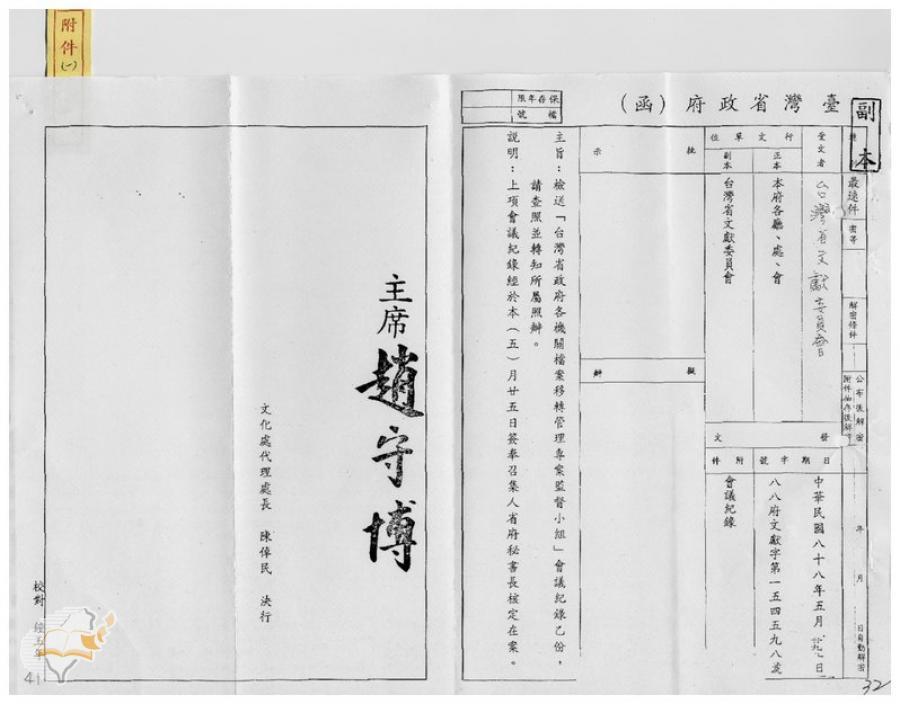 附件(一)
副本
臺灣省政府(函)
保存年限
檔號
最速件
密等
解密條件
公布後解密
附件抽存後解密
年 月 日自動解密
受文者
台灣省文獻委員會
行文單位
正本
本府各廳、處、會
副本
台灣省文獻委員會
發文
日期
中華民國八十八年五月 日
字號
八八府文獻字第一五四五九八號
附件
會議紀錄
批示
擬辦
主旨:檢送「台灣省政府各機關檔案移轉管理專案監督小組」會議紀錄乙份,
請查照並轉知所屬照辦。
說明:上項會議紀錄經於本(五)月廿五日簽奉召集人省府秘書長核定在案。
主席 趙守博
文化處代理處長 陳倬民 決行
校對
41
32